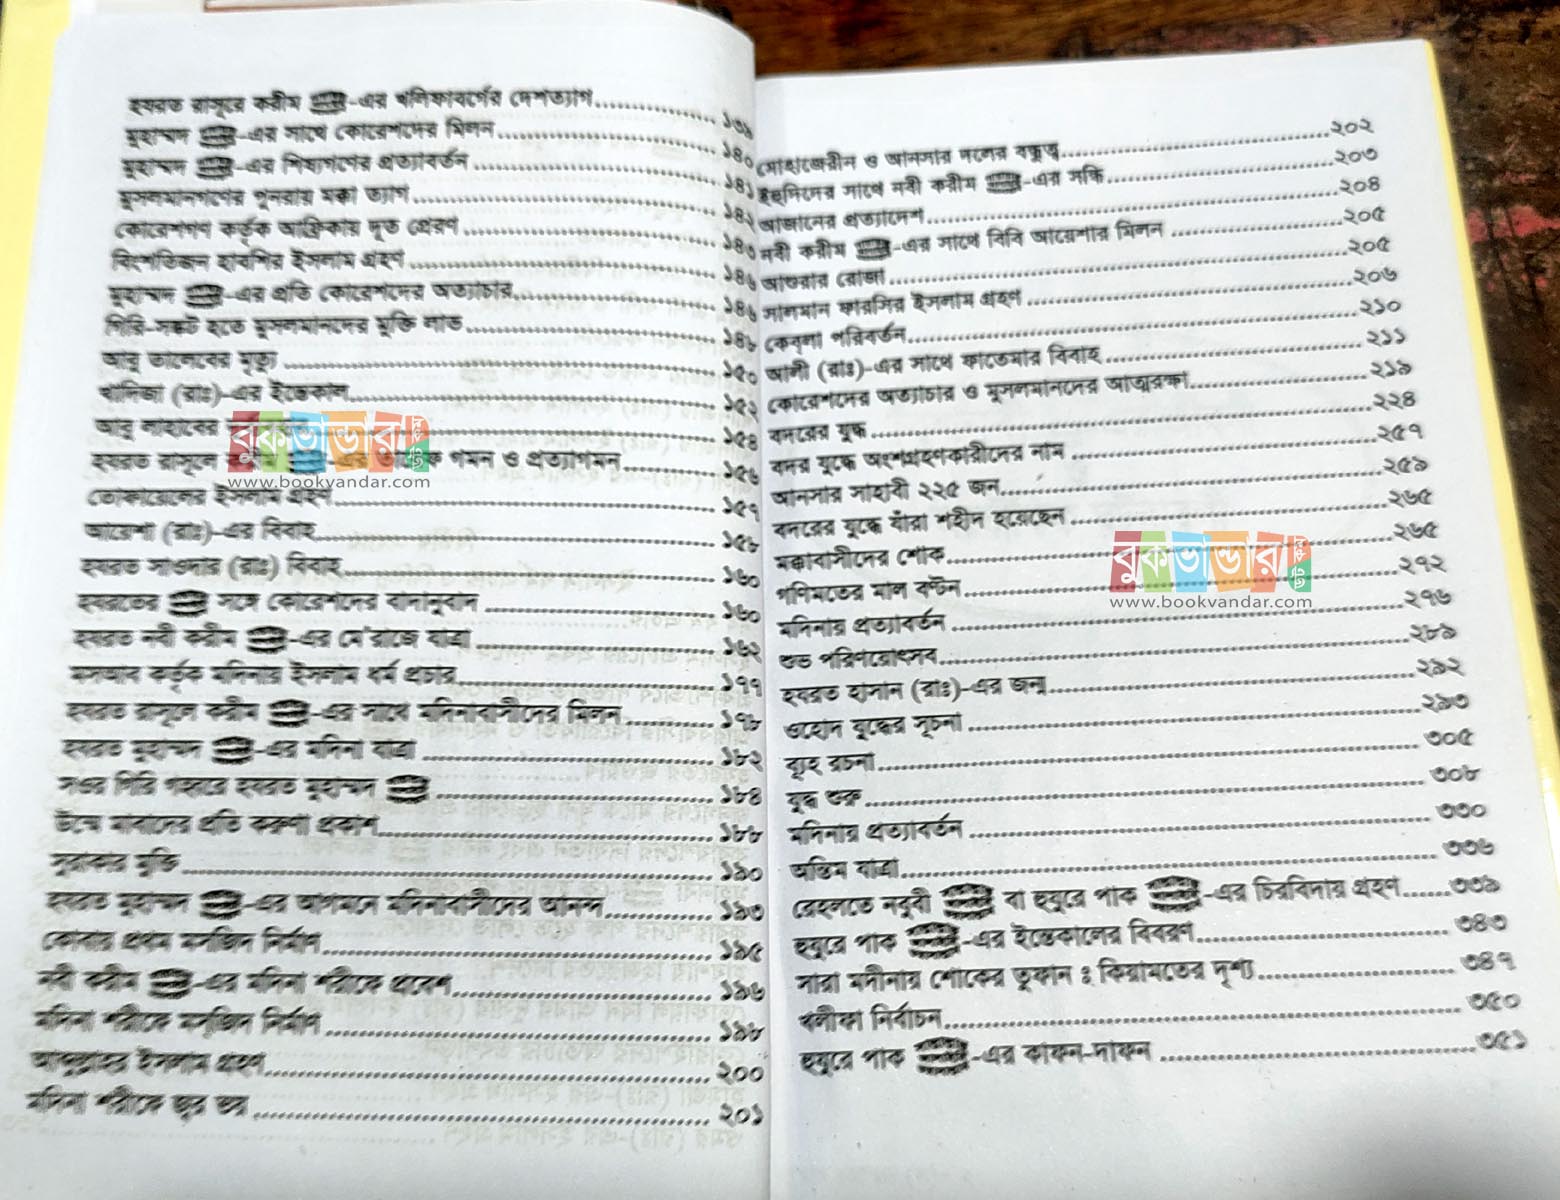 হযরত রাসূরে করীম ﷺ-এর খলিফাবর্গের দেশত্যাগ ১৩৯
মুহাম্মদ ﷺ-এর সাথে কোরেশদের মিলন ১৪০
মুহাম্মদ ﷺ-এর শিষ্যগণের প্রত্যাবর্তন ১৪১
মুসলমানগণের পুনরায় মক্কা ত্যাগ ১৪২
কোরেশগণ কর্তৃক আফ্রিকায় দূত প্রেরণ ১৪৩
বিংশতিজন হাবশির ইসলাম গ্রহণ ১৪৬
মুহাম্মদ ﷺ-এর প্রতি কোরেশদের অত্যাচার ১৪৬
গিরি-সঙ্কট হতে মুসলমানদের মুক্তি লাভ ১৪৮
আবু তালেবের মৃত্যু ১৫০
খাদিজা (রাঃ)-এর ইন্তেকাল ১৫২
আবু লাহাবের ১৫৪
হযরত রাসূলে গমন ও প্রত্যাগমন ১৫৬
তোফায়েলের ইসলাম গ্রহণ ১৫৭
আয়েশা (রাঃ)-এর বিবাহ ১৫৮
হযরত সাওদার (রাঃ) বিবাহ ১৬০
হযরতের ﷺ সঙ্গে কোরেশদের বাদানুবাদ ১৬০
হযরত নবী করীম ﷺ-এর মে'রাজে যাত্রা ১৬২
মসআব কর্তৃক মদিনায় ইসলাম ধর্ম প্রচার ১৭৭
হযরত রাসূলে করীম ﷺ-এর সাথে মদিনাবাসীদের মিলন ১৭৮
হযরত মুহাম্মদ ﷺ-এর মদিনা যাত্রা ১৮২
সওর গিরি গহ্বরে হযরত মুহাম্মদ ﷺ ১৮৪
উম্মে মাবাদের প্রতি করুণা প্রকাশ ১৮৮
সুরাকার মুক্তি ১৯০
হযরত মুহাম্মদ ﷺ-এর আগমনে মদিনাবাসীদের আনন্দ ১৯৩
কোবায় প্রথম মসজিদ নির্মাণ ১৯৫
নবী করীম ﷺ-এর মদিনা শরীফে প্রবেশ ১৯৬
মদিনা শরীফে মসজিদ নির্মাণ ১৯৮
আব্দুল্লাহর ইসলাম গ্রহণ ২০০
মদিনা শরীফে জ্বর ২০১
মোহাজেরীন ও আনসার দলের বন্ধুত্ব ২০২
ইহুদিদের সাথে নবী করীম ﷺ-এর সন্ধি ২০৩
আজানের প্রত্যাদেশ ২০৪
নবী করীম ﷺ-এর সাথে বিবি আয়েশার মিলন ২০৫
আশুরার রোজা ২০৫
সালমান ফারসির ইসলাম গ্রহণ ২০৬
কেবলা পরিবর্তন ২১০
আলী (রাঃ)-এর সাথে ফাতেমার বিবাহ ২১১
কোরেশদের অত্যাচার ও মুসলমানদের আত্মরক্ষা ২১৯
বদরের যুদ্ধ ২২৪
বদর যুদ্ধে অংশগ্রহণকারীদের নাম ২৫৭
আনসার সাহাবী ২২৫ জন ২৫৯
বদরের যুদ্ধে যাঁরা শহীদ হয়েছেন ২৬৫
মক্কাবাসীদের শোক ২৬৫
গণিমতের মাল বণ্টন ২৭২
মদিনায় প্রত্যাবর্তন ২৭৬
শুভ পরিণয়োৎসব ২৮৯
হযরত হাসান (রাঃ)-এর জন্ম ২৯২
ওহোদ যুদ্ধের সূচনা ২৯৩
ব্যূহ রচনা ৩০৫
যুদ্ধ শুরু ৩০৮
মদিনায় প্রত্যাবর্তন ৩৩০
অন্তিম যাত্রা ৩৩৬
রেহলতে নবুবী ﷺ বা হুযুরে পাক ﷺ-এর চিরবিদায় গ্রহণ ৩৩৯
হুযুরে পাক ﷺ-এর ইন্তেকালের বিবরণ ৩৪৩
সারা মদীনায় শোকের তুফান ঃ কিয়ামতের দৃশ্য ৩৪৭
খলীফা নির্বাচন ৩৫০
হুযুরে পাক ﷺ-এর কাফন-দাফন ৩৫১
বুকভান্ডার ডট কম
www.bookvandar.com
বুকভান্ডার ডট কম
www.bookvandar.com